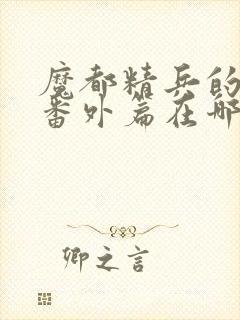 魔都精兵的
番外篇在哪
卿之言